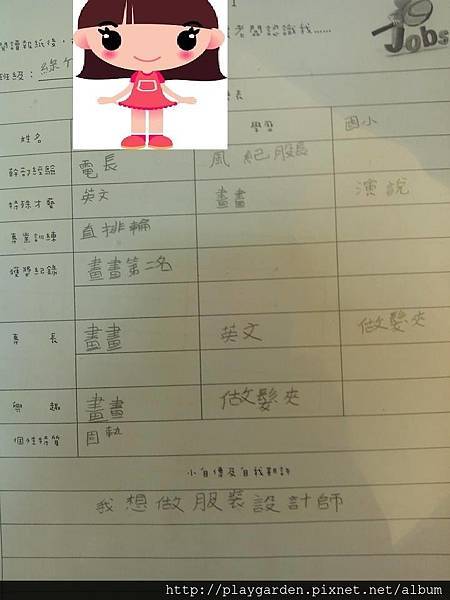 閱讀報紙後，
老闆認識我......
Jobs
班級：綠
長
姓名 學歷 國小
幹部經驗 電長 風紀股長
特殊才藝 英文 畫畫 演說
專業訓練 直排輪
獲獎紀錄 畫畫第二名
專長 畫畫 英文 做髮夾
興趣 畫畫 做髮夾
個性特質 固執
小自傳及自我期許
我想做服裝設計師
http://playgarden.pixnet.net/album